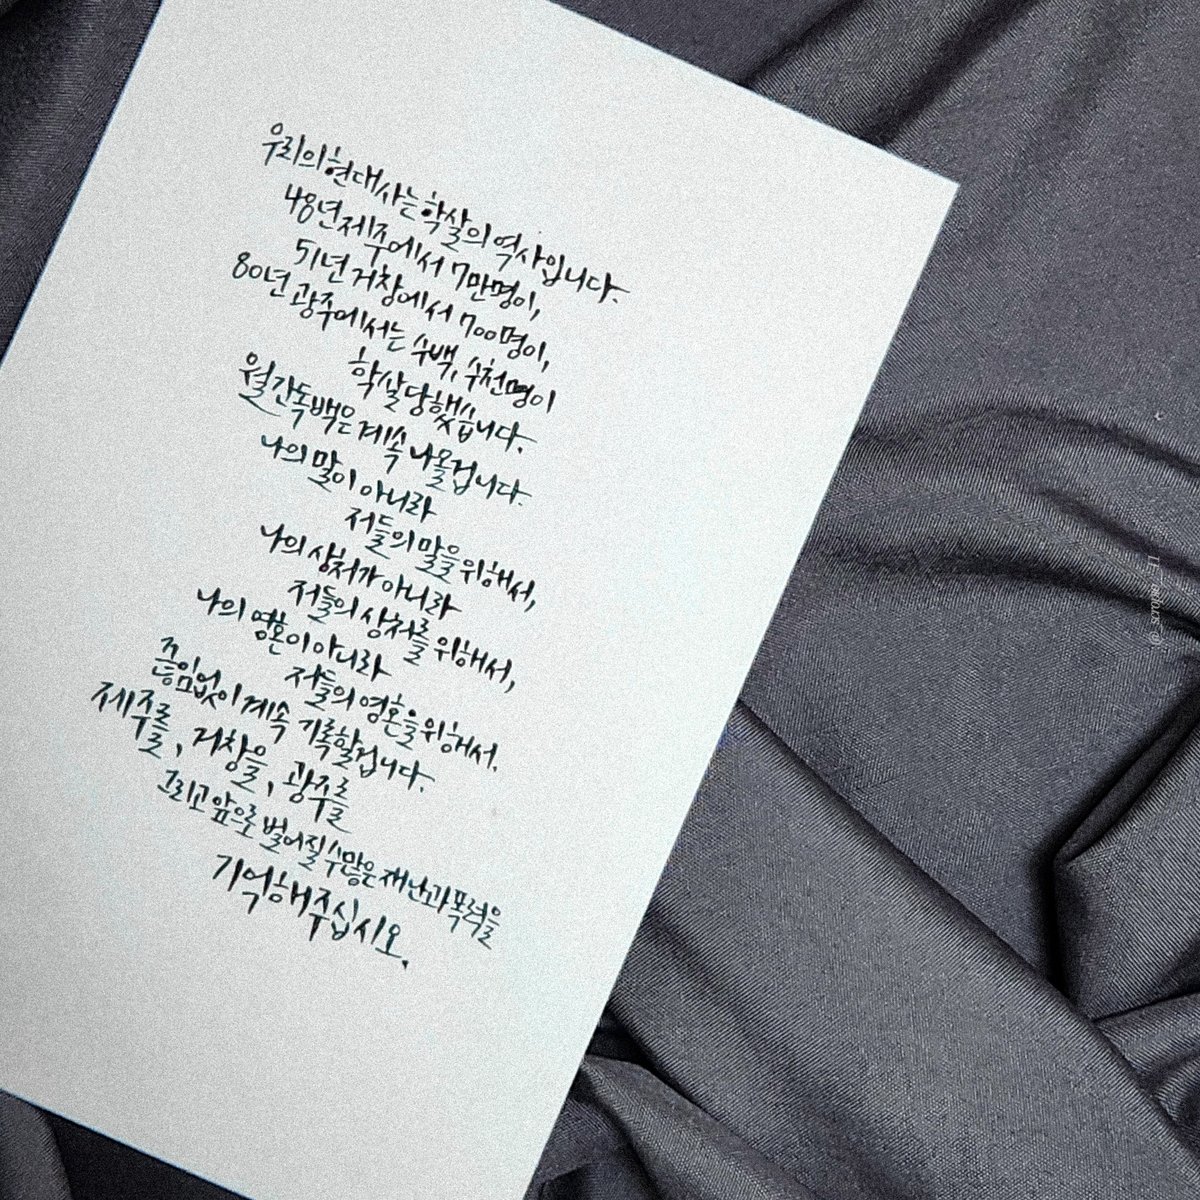 우리의 현대사는 학살의 역사입니다.
48년 제주에서 7만명이,
51년 거창에서 700명이,
80년 광주에서는 수백, 수천명이
학살당했습니다.
월간독백은 계속 나올겁니다.
나의 말이 아니라
저들의 말을 위해서,
나의 상처가 아니라
저들의 상처를 위해서,
나의 영혼이 아니라
저들의 영혼을 위해서.
끊임없이 계속 기록할겁니다.
제주를, 거창을, 광주를
그리고 앞으로 벌어질 수많은 재난과 폭력을
기억해주십시오.